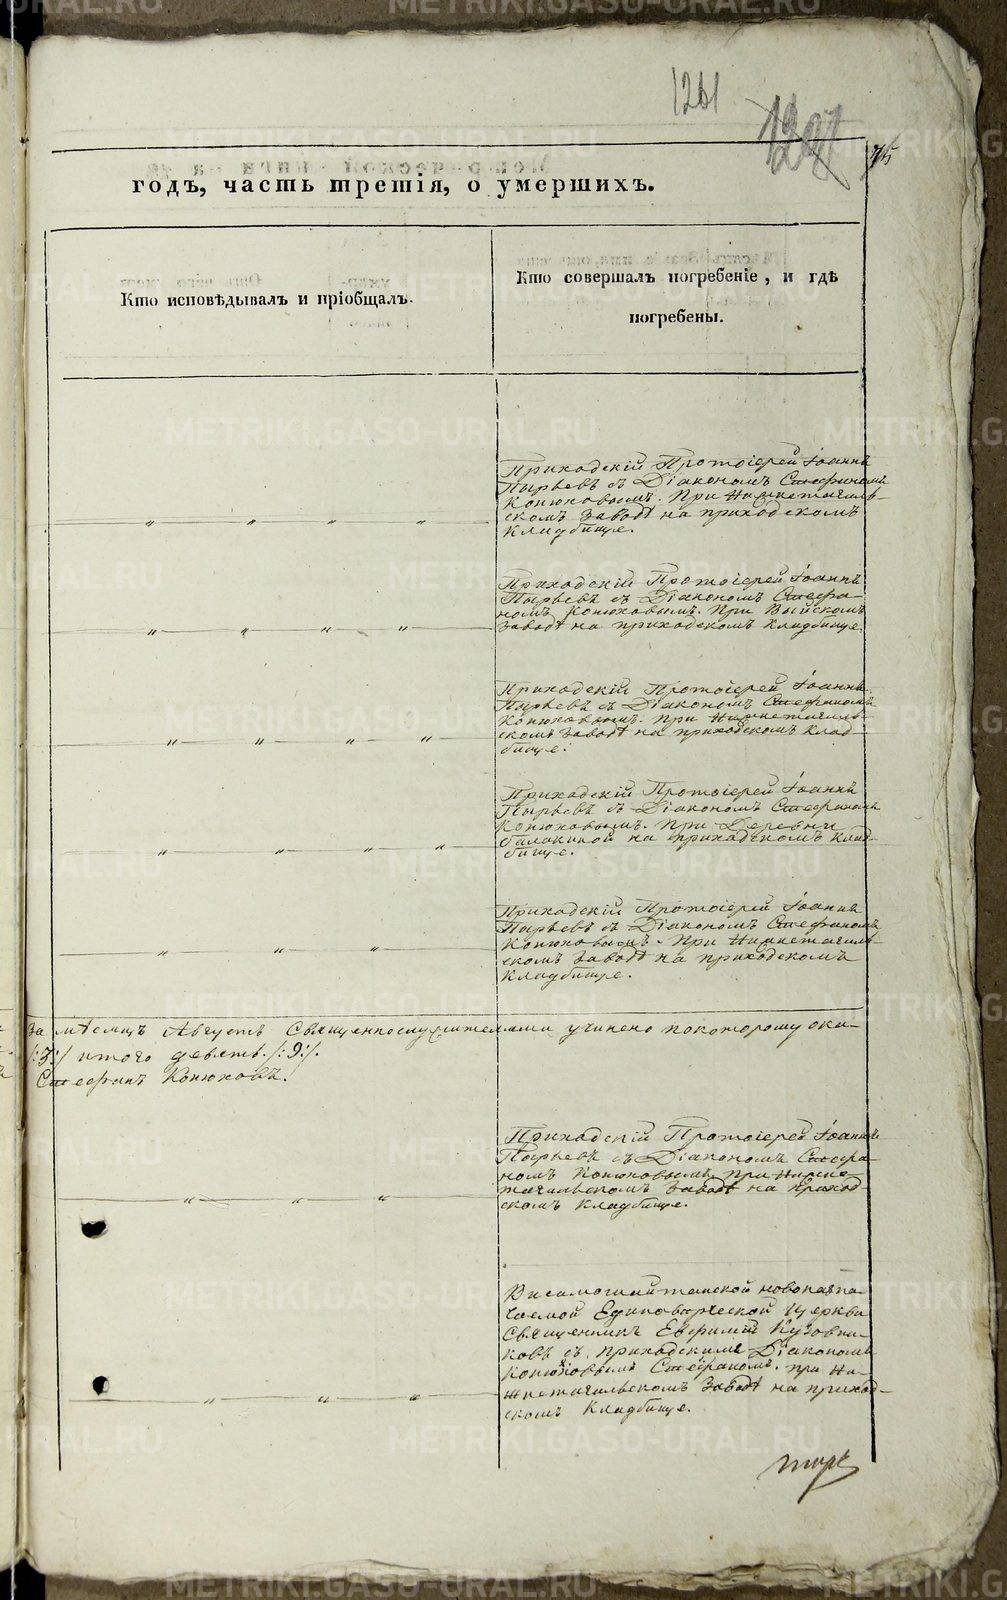 1261
1297
75
годъ, часть третія, о умершихъ.
Кто исповѣдывалъ и пріобщалъ.
Кто совершалъ погребеніе, и гдѣ
погребены.
Приходскій Протоіерей Іоаннъ
Пырьевъ съ Діакономъ Стефаномъ
Конюховымъ. При Нижнетагиль-
скомъ заводѣ на приходскомъ
кладбище.
Приходскій Протоіерей Іоаннъ
Пырьевъ съ Діакономъ Стефа-
номъ Конюховымъ. При Выйскомъ
заводѣ на приходскомъ кладбище.
Приходскій Протоіерей Іоаннъ
Пырьевъ съ Діакономъ Стефаномъ
Конюховымъ. При Нижнетагиль-
скомъ заводѣ на приходскомъ клад-
бище.
Приходскій Протоіерей Іоаннъ
Пырьевъ съ Діакономъ Стефаномъ
Конюховымъ. При Деревни
Балакиной на приходскомъ клад-
бище.
Приходскій Протоіерей Іоаннъ
Пырьевъ съ Діакономъ Стефаномъ
Конюховымъ. При Нижнетагиль-
скомъ заводѣ на приходскомъ
кладбище.
За мѣсяцъ Августъ Священнослужителями учинено покоторому ока-
/:3:/ итого девять. /:9:/.
Стефанъ Конюховъ.
Приходскій Протоіерей Іоаннъ
Пырьевъ съ Діакономъ Стефа-
номъ Конюховымъ. При Нижне-
тагильскомъ заводѣ на приход-
скомъ кладбище.
Висимошайтанской
Единовѣрческой Церкви
Священникъ Евфимій Кузовни-
ковъ съ приходскимъ Діакономъ
Конюховымъ Стефаномъ. при Ни-
жнетагильскомъ заводѣ на приход-
скомъ кладбище.